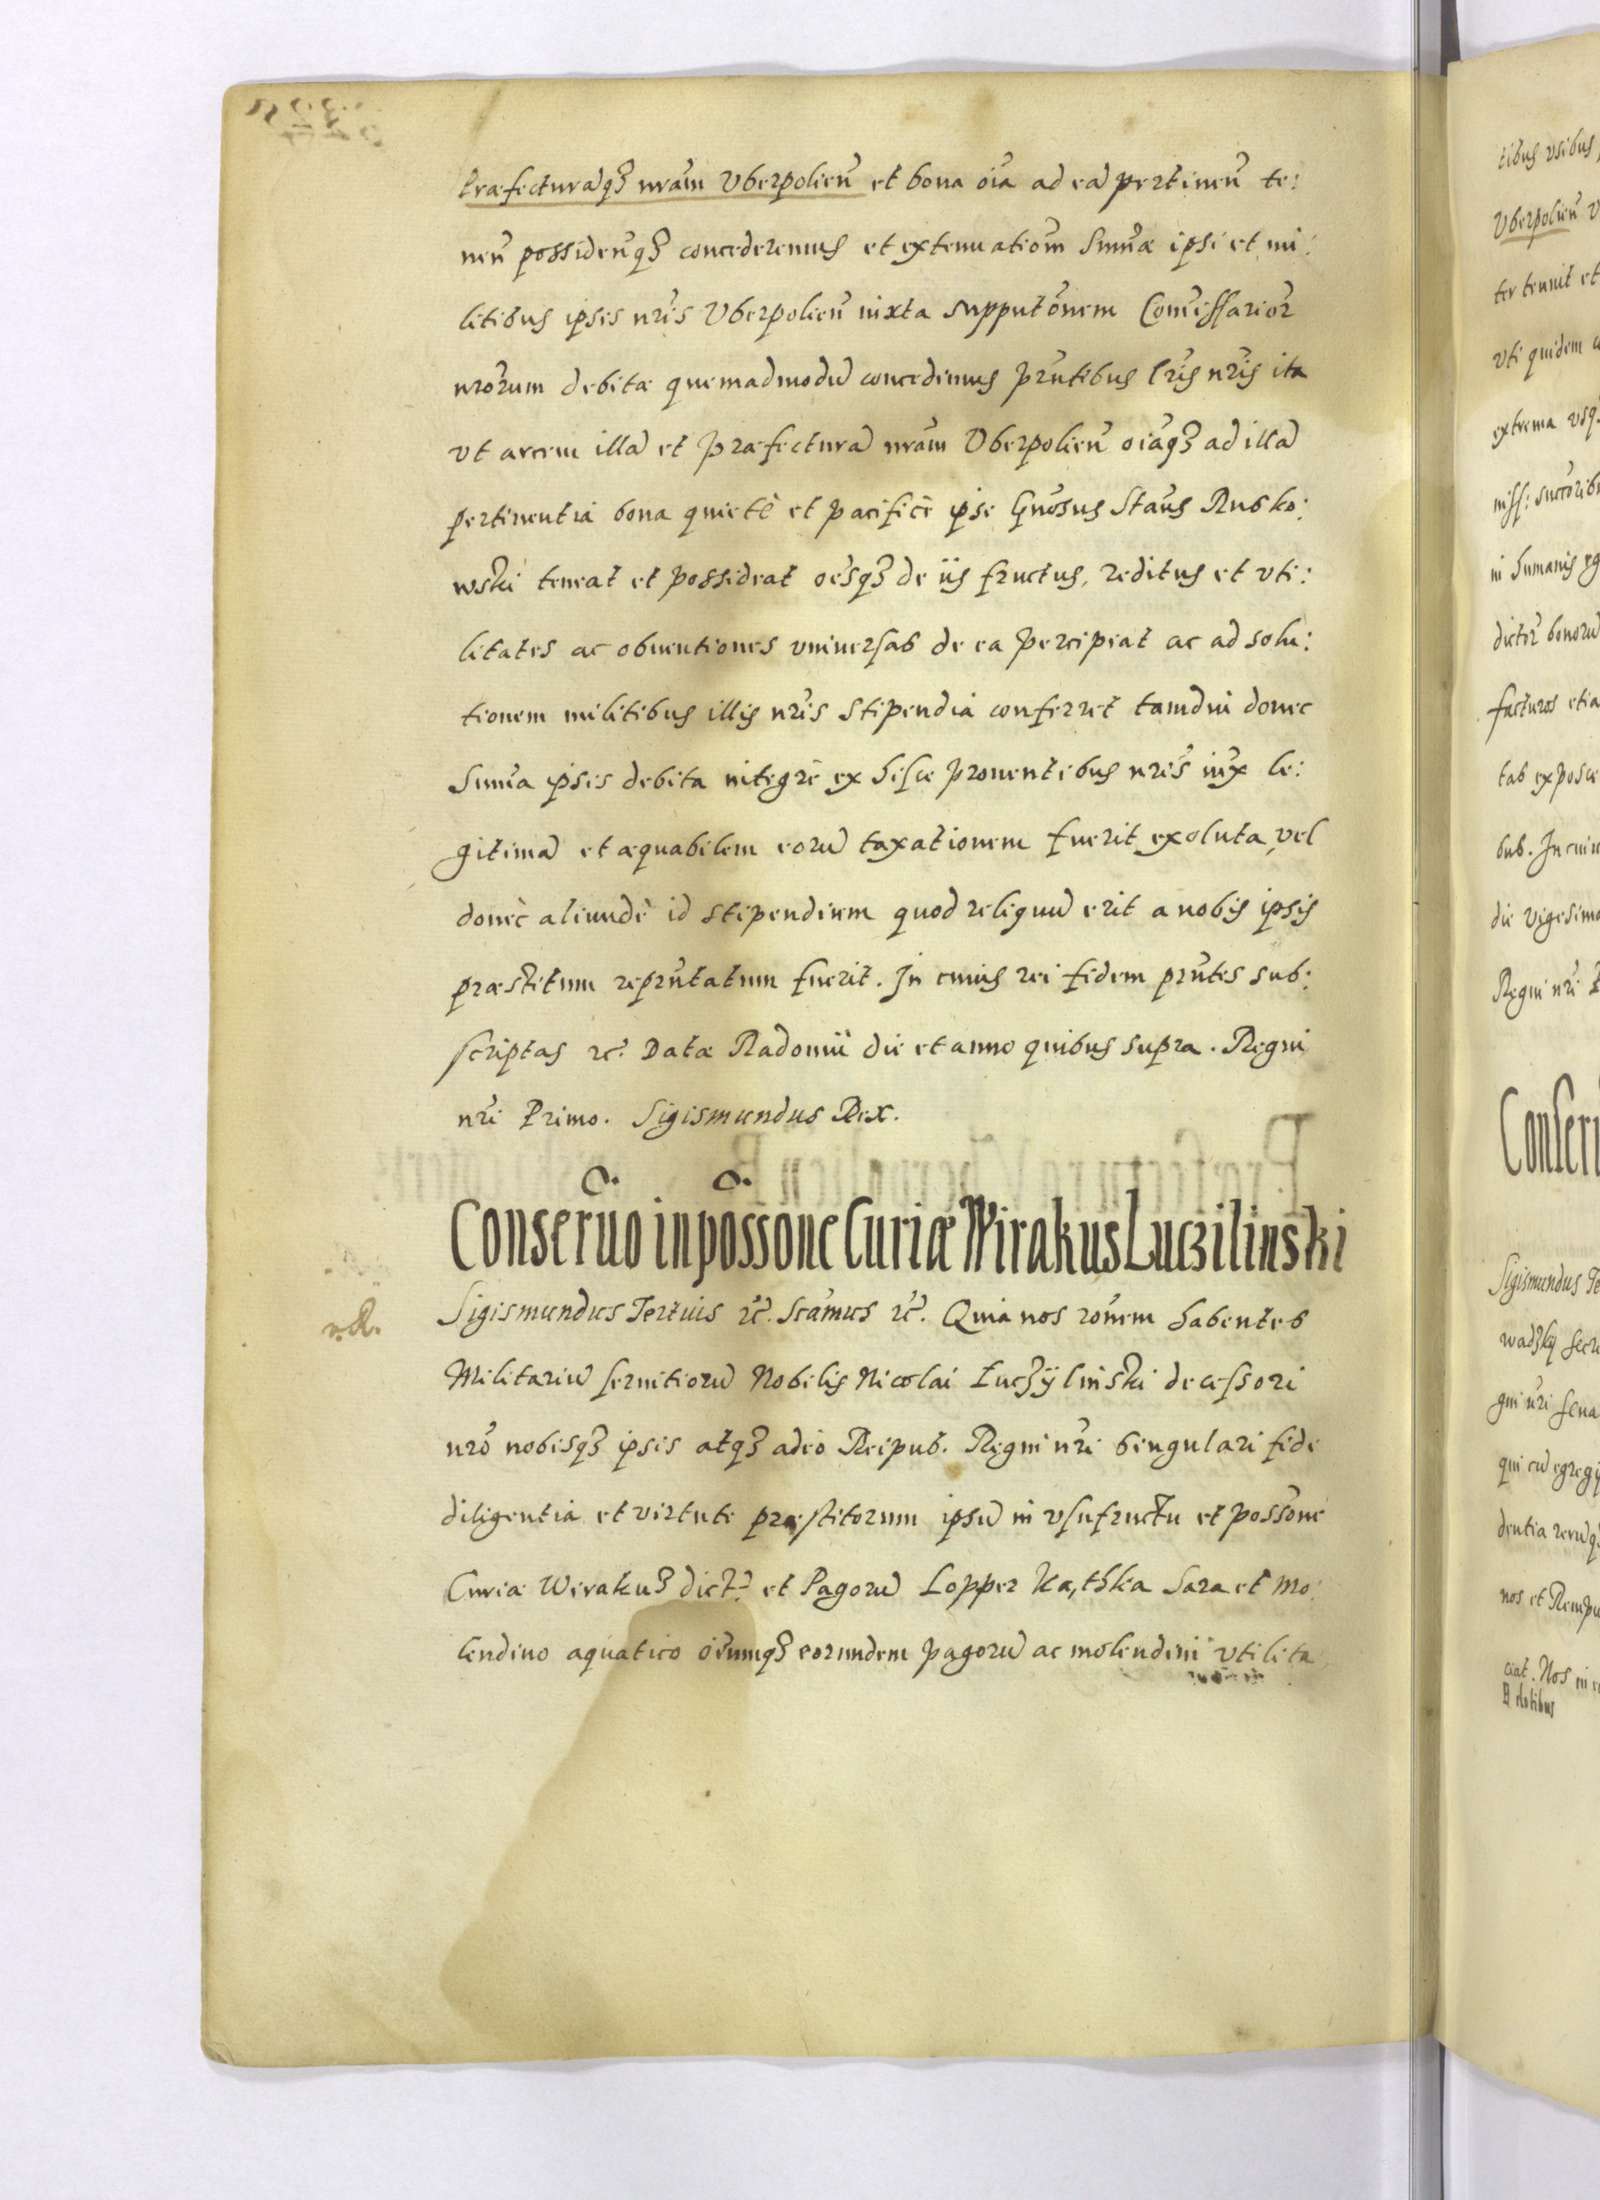 Præfecturaq₃ nram Vberpolien et bona oia ad ea pertinen te:
nen possidenq₃ concederemus et extenuatiom Summæ ipsi et mi:
litibus ipsis nris Vberpolien iuxta supputonem Comissarior
nrorum debitæ quemadmodu concedimus prntibus lris nris ita
vt arcem illa et Præfectura nram Vberpolien oiaq₃ ad illa
pertinentia bona quietè et pacificè ipse Gnosus Staus Rusko:
wski teneat et possideat oesq₃ de iis fructus, reditus et vti:
litates ac obuentiones vniuersas de ea percipiat ac ad solu:
tionem militibus illis nris Stipendia conferret tamdiu donec
Summa ipsis debita integrè ex hisce prouentibus nris iux le:
gitima et æquabilem eoru taxationem fuerit exoluta, vel
donèc aliundè id stipendium quod reliquu erit a nobis ipsis
præstitum repræntatum fuerit. In cuius rei fidem prntes sub:
scriptas rc. Datæ Radomii die et anno quibus supra. Regni
nri Primo. Sigismundus Rex.
Conseruo in possone Curiæ Wirakus Luczilinski
Sigismundus Tertius rc. Scamus rc. Quia nos ronem habentes
Militariu seruitioru Nobilis Nicolai Luczÿlinski decessori
nro nobisq₃ ipsis atq₃ adeò Reipub. Regni nri singulari fide
diligentia et virtute præstitorum ipsu in vsufructu et possone
Curiæ Wirakus dict et Pagoru Lopper Ka,thka Sara et Mo:
lendino aquatico oiumq₃ eorundem pagoru ac molendini vtilita
tibus vsibus
Vberpolien
ter tenuit et
vti quidem
extrema vsq₃
niss: succorib
in humanis
dictor bonoru
facturos etia
tab exposce
bus. In cuiu
die vigesima
Regni nri
Conseru
Sigismundus Te
wadzky secre
gni nri sena
qui cu egregi
dentia reruq₃
nos et Rempu
ciat. Nos in
dotibus